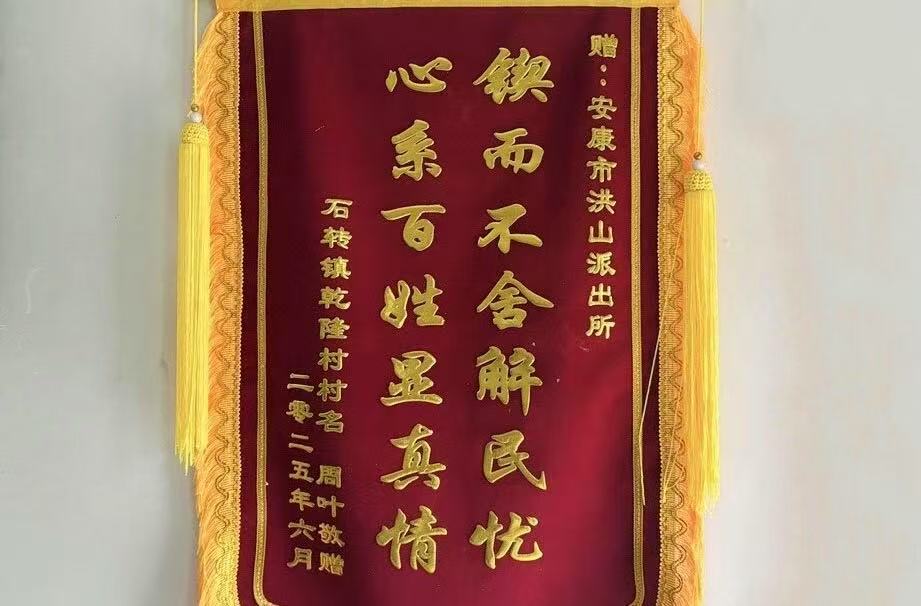 赠：安康市洪山派出所
锲而不舍解民忧
心系百姓显真情
石转镇乾隆村村名 周叶敬赠
二零二五年六月